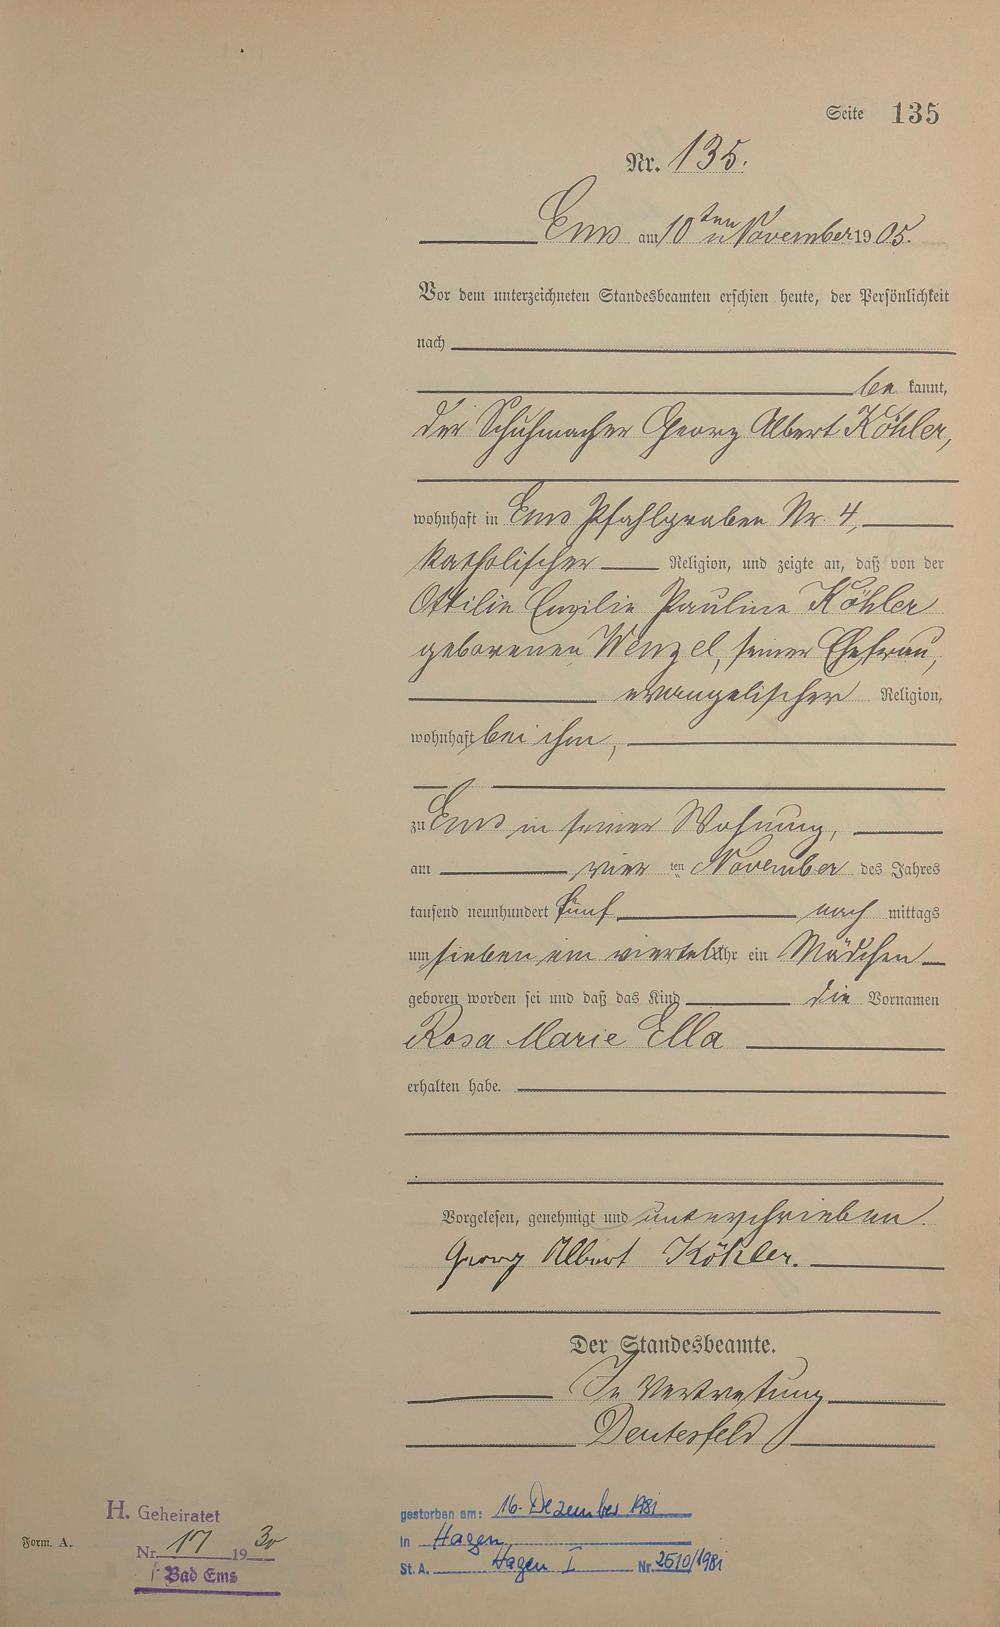 Seite 135
Nr. 135.
Ems am 10ten November 1905.
Vor dem unterzeichneten Standesbeamten erschien heute, der Persönlichkeit
nach
be kannt,
der Schuhmacher Georg Albert Köhler,
wohnhaft in Ems Pfahlgraben Nr. 4,
katholischer Religion, und zeigte an, daß von der
Ottilie Emilie Pauline Köhler
geborenen Wenzel, seiner Ehefrau,
evangelischer Religion,
wohnhaft bei ihm,
zu Ems in seiner Wohnung,
am vier ten November des Jahres
tausend neunhundert fünf nach mittags
um sieben ein viertel Uhr ein Mädchen
geboren worden sei und daß das Kind die Vornamen
Rosa Marie Ella
erhalten habe.
Vorgelesen, genehmigt und unterschrieben.
Georg Albert Köhler.
Der Standesbeamte.
In Vertretung
Deutesfeld
H. Geheiratet
Nr. 17 1930
Bad Ems
Form. A.
gestorben am: 16. Dezember 1981
in Hagen
St. A. Hagen I Nr. 2510/1981